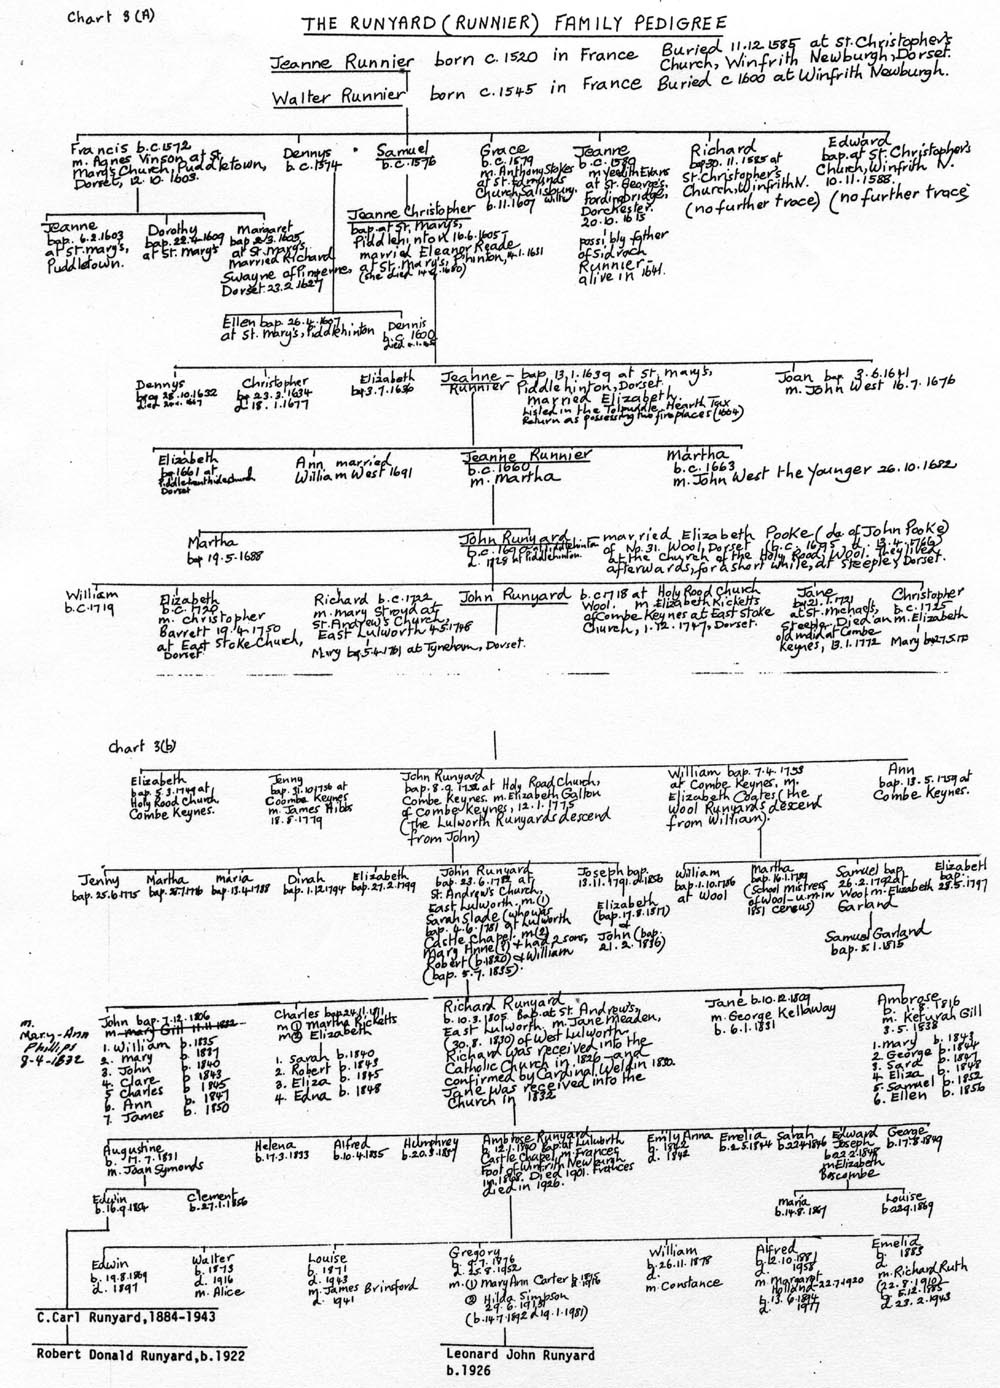 Chart 3(A)
THE RUNYARD (RUNNIER) FAMILY PEDIGREE
Jeanne Runnier born c.1520 in France Buried 11.12.1585 at St. Christopher's
Church, Winfrith Newburgh, Dorset.
Walter Runnier born c.1545 in France Buried c 1600 at Winfrith Newburgh.
Francis b.c.1572
m. Agnes Vinson at St
Mary's Church, Puddletown,
Dorset, 12.10.1603.
Dennys
b.c.1574
Samuel
b.c.1576
Grace
b.c.1579
m. Anthony Stokes
at St. Edmunds
Church, Salisbury.
6.11.1607 Wilts
Jeanne
b.c.1580
m Evans
at St. George's,
Fordingbridge,
Dorchester.
20.10.1615
possibly father
of Sidrach
Runnier-
alive in 1641.
Richard
bap 30.11.1585 at
St. Christopher's
Church, Winfrith N.
(no further trace)
Edward
bap. at St. Christopher's
Church, Winfrith N.
10.11.1588.
(no further trace)
Jeanne
bap. 6.2.1603
at St. Mary's,
Puddletown.
Dorothy
bap. 22.4.1609
at St. Mary's
Margaret
bap 2/3.1605
at St. Mary's
Married Richard
Swayne of Pimperne,
Dorset 23.2.1627
Jeanne Christopher
bap at St. Mary's,
Piddlehinton 16.6.1605-
married Eleanor Reade
at St. Mary's, P'hinton, 4.1.1631
(she died 1680)
Ellen bap. 26.4.1607
at St. Mary's, Piddlehinton
Dennis
b.c. 1600
Dennys
bap 28.10.1632
died 1667
Christopher
bp 23.3.1634
d. 18.1.1677
Elizabeth
bp 3.7.1636
Jeanne - bap. 13.1.1639 at St. Mary's,
Runnier Piddlehinton, Dorset
married Elizabeth.
Listed in the Tolpuddle Hearth Tax
Return as possessing two fireplaces (1664)
Joan bap 3.6.1641
m. John West 16.7.1676
Elizabeth
bp 1661 at
Dorset
Ann married
William West 1691
Jeanne Runnier
b.c. 1660
m. Martha
Martha
b.c. 1663
m. John West the Younger 26.10.1682
Martha
bp 19.5.1688
John Runyard
b.c. 1690 at Piddlehinton
d. 1728 at Piddlehinton.
married Elizabeth Pooke (da of John Pooke)
of No. 31. Wool, Dorset (b.c. 1695 d. 13.4.1766)
at the church of the Holy Rood, Wool. They lived
afterwards, for a short while, at Steeple, Dorset.
William
b.c.1719
Elizabeth
b.c. 1720
m. Christopher
Barrett 19.4.1750
at East Stoke Church,
Dorset
Richard b.c.1722
m. Mary Stroyd at
St. Andrew's Church,
East Lulworth 4.5.1748
Mary bp 5.4.1751 at Tyneham, Dorset.
John Runyard b.c.1718 at Holy Rood Church
Wool. m Elizabeth Ricketts
of Combe Keynes at East Stoke
Church, 1.12.1747, Dorset.
Jane
bp 21.7.1721
at St. Michael's,
Steeple. Died an
old maid at Combe
Keynes, 13.1.1772
Christopher
b.c.1725
m. Elizabeth
Mary bp
Chart 3(b)
Elizabeth
bap. 5.3.1749 at
Holy Rood Church
Combe Keynes.
Jenny
bap. 31.10.1756 at
Coombe Keynes
m. James Hibbs
18.8.1779
John Runyard
bap. 8.9.1752 at Holy Rood Church,
Combe Keynes. m. Elizabeth Galton
of Combe Keynes, 12.1.1775
(The Lulworth Runyards descend
from John)
William bap. 7.4.1753
at Combe Keynes. m.
Elizabeth Coates (the
Wool Runyards descend
from William).
Ann
bap. 13.5.1759 at
Combe Keynes.
Jenny
bap. 25.6.1775
Martha
bap.
Maria
bap. 13.4.1788
Dinah
bap. 1.12.1794
Elizabeth
bap. 27.2.1799
John Runyard
bap. 23.6.1782 at
St. Andrew's Church,
East Lulworth. m. (1)
Sarah Slade (who was
bap. 4.6.1781 at Lulworth
Castle Chapel. m (2)
Mary Anne (?) + had 2 sons,
Robert (b.1820) & William
(bap. 5.7.1835).
Joseph bap.
13.11.1791. d.1856
Elizabeth
(bap. 17.8.1817)
&
John (bap.
21.2.1836)
William
bap. 1.10.1786
at Wool
Martha
bap. 16.1.1789
(School mistress
of Wool - u.m in
1851 census)
Samuel bap.
26.2.1792 at
Wool m. Elizabeth
Garland
Samuel Garland
bap. 5.1.1815
Elizabeth
bap.
28.5.1797
m.
Mary-Ann
Phillips
8-4-1832
John bap. 7.12.1806
m. Mary Gill 11.11.1832
1. William b.1835
2. Mary b. 1837
3. John b. 1840
4. Clare b. 1843
5 Charles b. 1845
6. Ann b. 1847
7. James b. 1850
Charles bap 24.11.1811
m ① Martha Ricketts
m ② Elizabeth
1. Sarah b.1840
2. Robert b. 1843
3. Eliza b. 1845
4. Edna b. 1848
Richard Runyard
b. 10.3.1805. Bap. at St. Andrew's,
East Lulworth. m. Jane Meaden,
(30.8.1830) of West Lulworth.
Richard was received into the
Catholic Church in 1826 and
confirmed by Cardinal Weld in 1830.
Jane was received into the
Church in 1832
Jane b.10.12.1809
m. George Kellaway
b. 6.1.1831
Ambrose
b. 1.8.1816
m. Keturah Gill
3.5.1838
1. Mary b. 1843
2 George b. 1844
3. Sara b. 1847
4. Eliza b. 1848
5. Samuel b. 1852
6. Ellen b. 1856
Augustine
b. 17.7.1831
m. Joan Symonds
Helena
b.17.3.1833
Alfred
b.10.4.1835
Humphrey
b.20.3.1837
Ambrose Runyard
b. 12.1.1840 Bap. at Lulworth
Castle Chapel, m Frances
Foot of Winfrith Newburgh
in 1868. Died 1901. Frances
died in 1926.
Emily Anna
b. 1842
d. 1842
Emelia
b.2.5.1844
Sarah
b.22.4.1846
Edward
Joseph
b.22.2.1848
m Elizabeth
Boscombe
George
b.17.8.1849
Edwin
b.16.9.1854
Clement
b.27.1.1856
Maria
b.14.8.1867
Louise
b.22.9.1869
Edwin
b. 19.8.1869
d. 1897
Walter
b. 1873
d. 1916
m. Alice
Louise
b. 1871
d. 1943
m. James Brinford
d. 1941
Gregory
b. 9.7.1876
d. 25.8.1952
m. ① Mary Ann Carter
② Hilda Simpson
29.6.1915
(b.14.7.1892 d 19.1.1981)
William
b. 26.11.1878
d.
m. Constance
Alfred
b. 12.10.1881
d. 1958
m. Margaret
Holland 22.7.1920
b. 13.6.1894
d. 1977
Emelia
b. 1883
d.
m. Richard Ruth
(22.8.1910)
b. 5.12.1885
d. 23.2.1943
C.Carl Runyard,1884-1943
Robert Donald Runyard,b.1922
Leonard John Runyard
b.1926